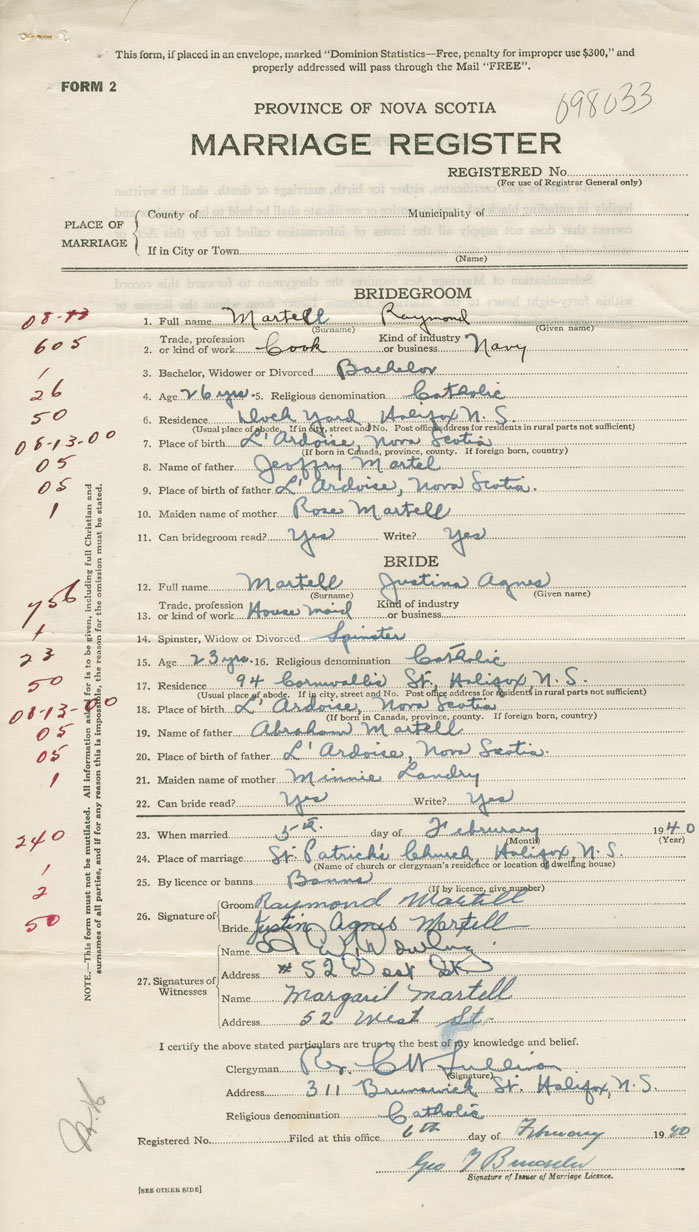 This form, if placed in an envelope, marked "Dominion Statistics—Free, penalty for improper use $300," and
properly addressed will pass through the Mail "FREE".
FORM 2
098033
PROVINCE OF NOVA SCOTIA
MARRIAGE REGISTER
REGISTERED No.
(For use of Registrar General only)
PLACE OF MARRIAGE
County of Municipality of
If in City or Town
(Name)
BRIDEGROOM
1. Full name Martell Raymond
(Surname) (Given name)
605
2. Trade, profession or kind of work Cook Kind of industry or business Navy
1
3. Bachelor, Widower or Divorced Bachelor
26
4. Age 26 yrs. 5. Religious denomination Catholic
50
6. Residence Dock Yard Halifax N. S.
(Usual place of abode. If in city, street and No. Post office address for residents in rural parts not sufficient)
08-13-00
7. Place of birth L'Ardoise, Nova Scotia
(If born in Canada, province, county. If foreign born, country)
05
8. Name of father Jeoffry Martel
05
9. Place of birth of father L'Ardoise, Nova Scotia.
1
10. Maiden name of mother Rose Martell
11. Can bridegroom read? Yes Write? Yes
BRIDE
12. Full name Martell Justina Agnes
(Surname) (Given name)
756
13. Trade, profession or kind of work House maid Kind of industry or business
14. Spinster, Widow or Divorced Spinster
23
15. Age 23 yrs. 16. Religious denomination Catholic
50
17. Residence 94 Cornwallis St., Halifax N. S.
(Usual place of abode. If in city, street and No. Post office address for residents in rural parts not sufficient)
08-13-00
18. Place of birth L'Ardoise, Nova Scotia
(If born in Canada, province, county. If foreign born, country)
05
19. Name of father Abraham Martell
05
20. Place of birth of father L'Ardoise, Nova Scotia.
1
21. Maiden name of mother Minnie Landry
22. Can bride read? Yes Write? Yes
23. When married 5th. day of Februrary 1940
(Month) (Year)
240
24. Place of marriage St. Patrick's Church, Halifax, N. S.
(Name of church or clergyman's residence or location of dwelling house)
1
25. By licence or banns Banns
(If by licence, give number)
2
26. Signature of
Groom Raymond Martell
50
Bride Justina Agnes Martell
27. Signatures of Witnesses
Name
Address # 52 West St
Name Margaril Martell
Address 52 West St.
I certify the above stated particulars are true to the best of my knowledge and belief.
Clergyman Rev. C W Sullivan
(Signature)
Address 311 Brunswick St. Halifax, N. S.
Religious denomination Catholic
Registered No. Filed at this office 6th day of February 1940
Geo
Signature of Issuer of Marriage Licence.
[SEE OTHER SIDE]
NOTE.—This form must not be mutilated. All information asked for is to be given, including full Christian and
surnames of all parties, and if for any reason this is impossible, the reason for the omission must be stated.